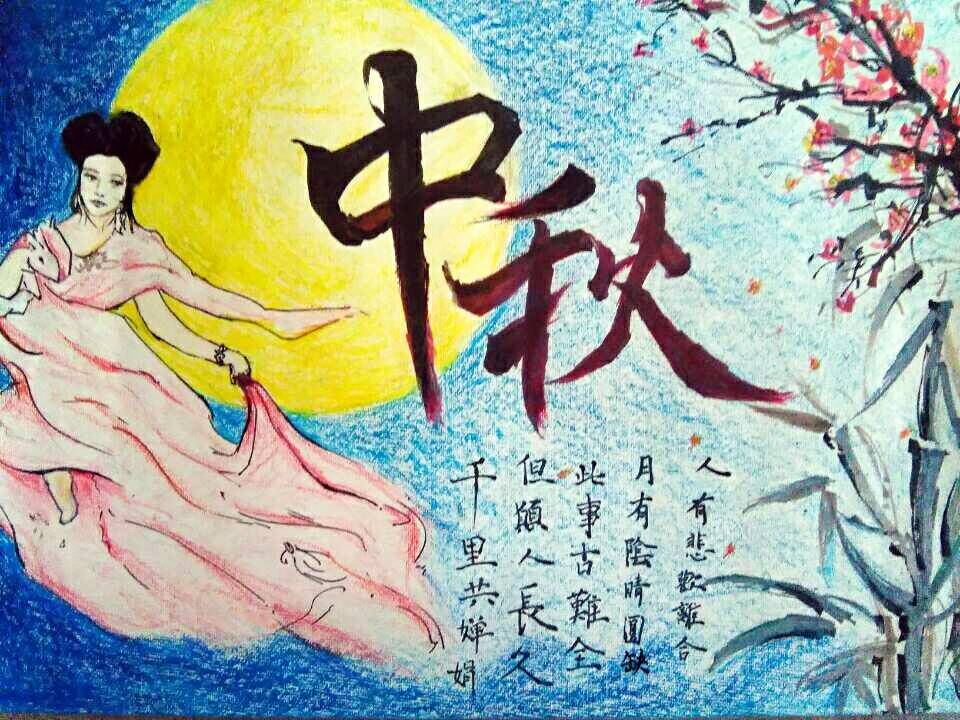 中秋
人有悲歡離合
月有陰晴圓缺
此事古難全
但願人長久
千里共嬋娟